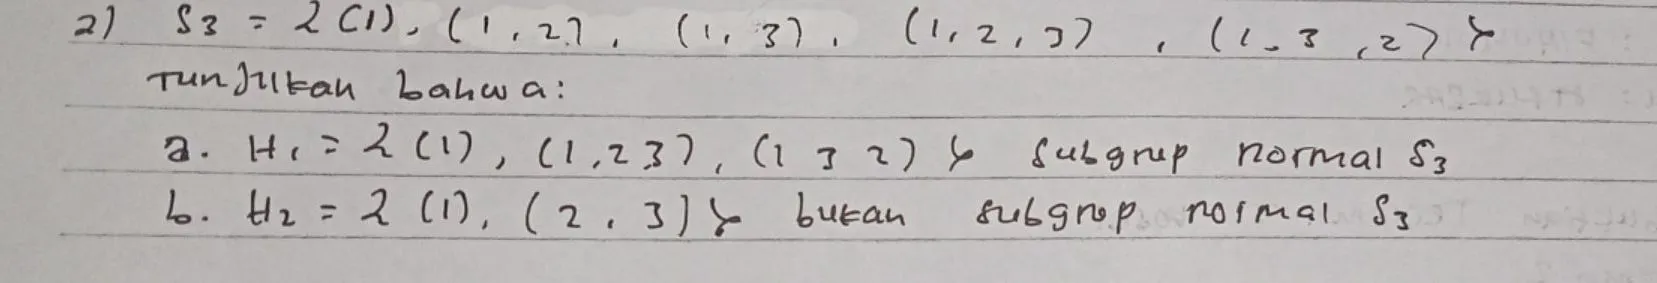 2) S3 = {(1), (1, 2), (1, 3), (1, 2, 3), (1, 3, 2)}
Tunjukan bahwa:
a. H1 = {(1), (1, 2 3), (1 3 2)} subgrup normal S3
b. H2 = {(1), (2, 3)} bukan subgrup normal S3